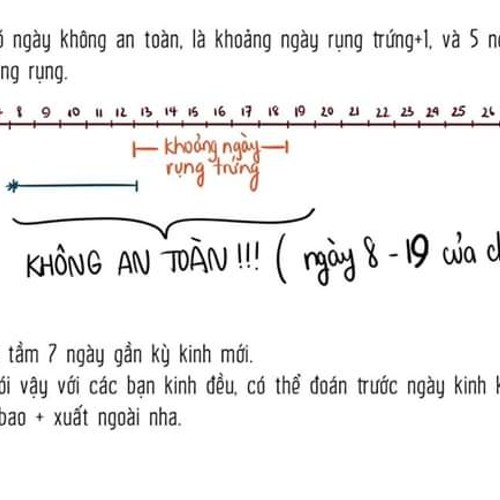 ngày không an toàn, là khoảng ngày rụng trứng+1, và 5
rụng.
8 9 10 11 12 13 14 15 16 17 18 19 20 21 22 23 24 25 26
khoảng ngày
rụng trứng
KHÔNG AN TOÀN !!! ( ngày 8 - 19 của
tầm 7 ngày gần kỳ kinh mới.
vậy với các bạn kinh đều, có thể đoán trước ngày kinh
bao + xuất ngoài nha.